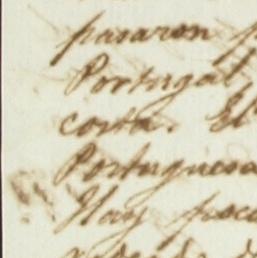 pasaron p
Portugal
costa. El
Portuguesa
Hay poco